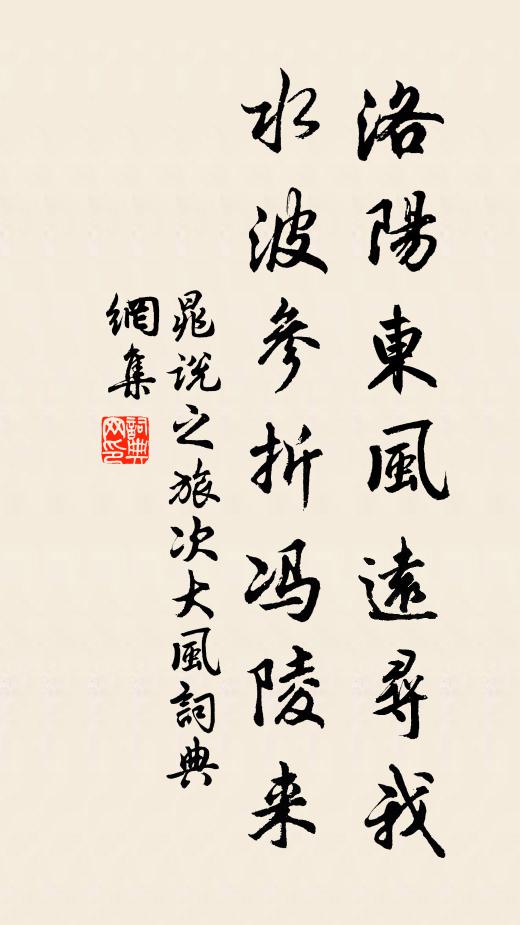 洛陽東風遠尋我
水波參折冯陵来
晁说之旅次大風詞典
網集
詞典
网印